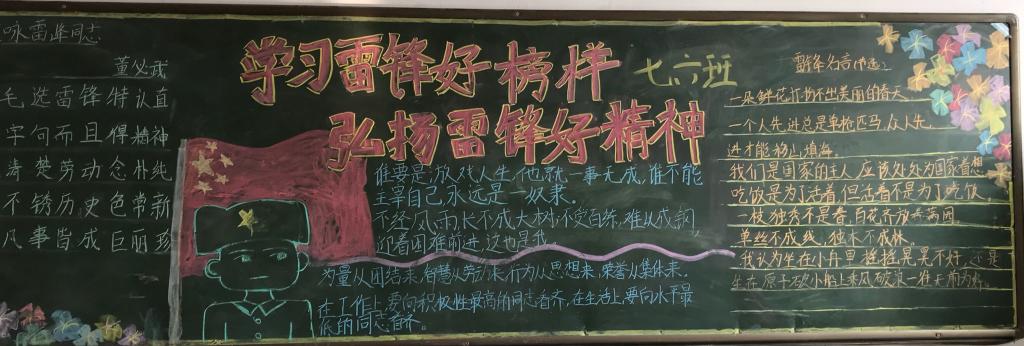 咏雷锋同志
董必武
毛选雷锋特认真
字句而且得精神
清楚劳动念朴纯
不锈历史色常新
凡事皆成巨丽珍
学习雷锋好榜样
七六班
弘扬雷锋好精神
谁要是放戏人生,他就一事无成,谁不能
主宰自己永远是一奴隶。
不经风雨长不成大树,不受百练,难以成钢,
迎着困难前进,这也是我
为量从团结来,智慧从劳动来,行为从思想来,荣誉从集体来。
在工作上,要向积极性最高的同志看齐,在生活上,要向水平最
低的同志看齐。
雷锋名言(节选)
一朵鲜花打扮不出美丽的春天
一个人先进总是单枪匹马,众人先
进才能移山填海。
我们是国家的主人,应该处处为国家着想
吃饭是为了活着,但活着不是为了吃饭
一枝独秀不是春,百花齐放春满园
单丝不成线,独木不成林。
我认为坐在小舟里摇摇晃晃不好,还是
坐在原子破小船上乘风破浪一往无前为好。